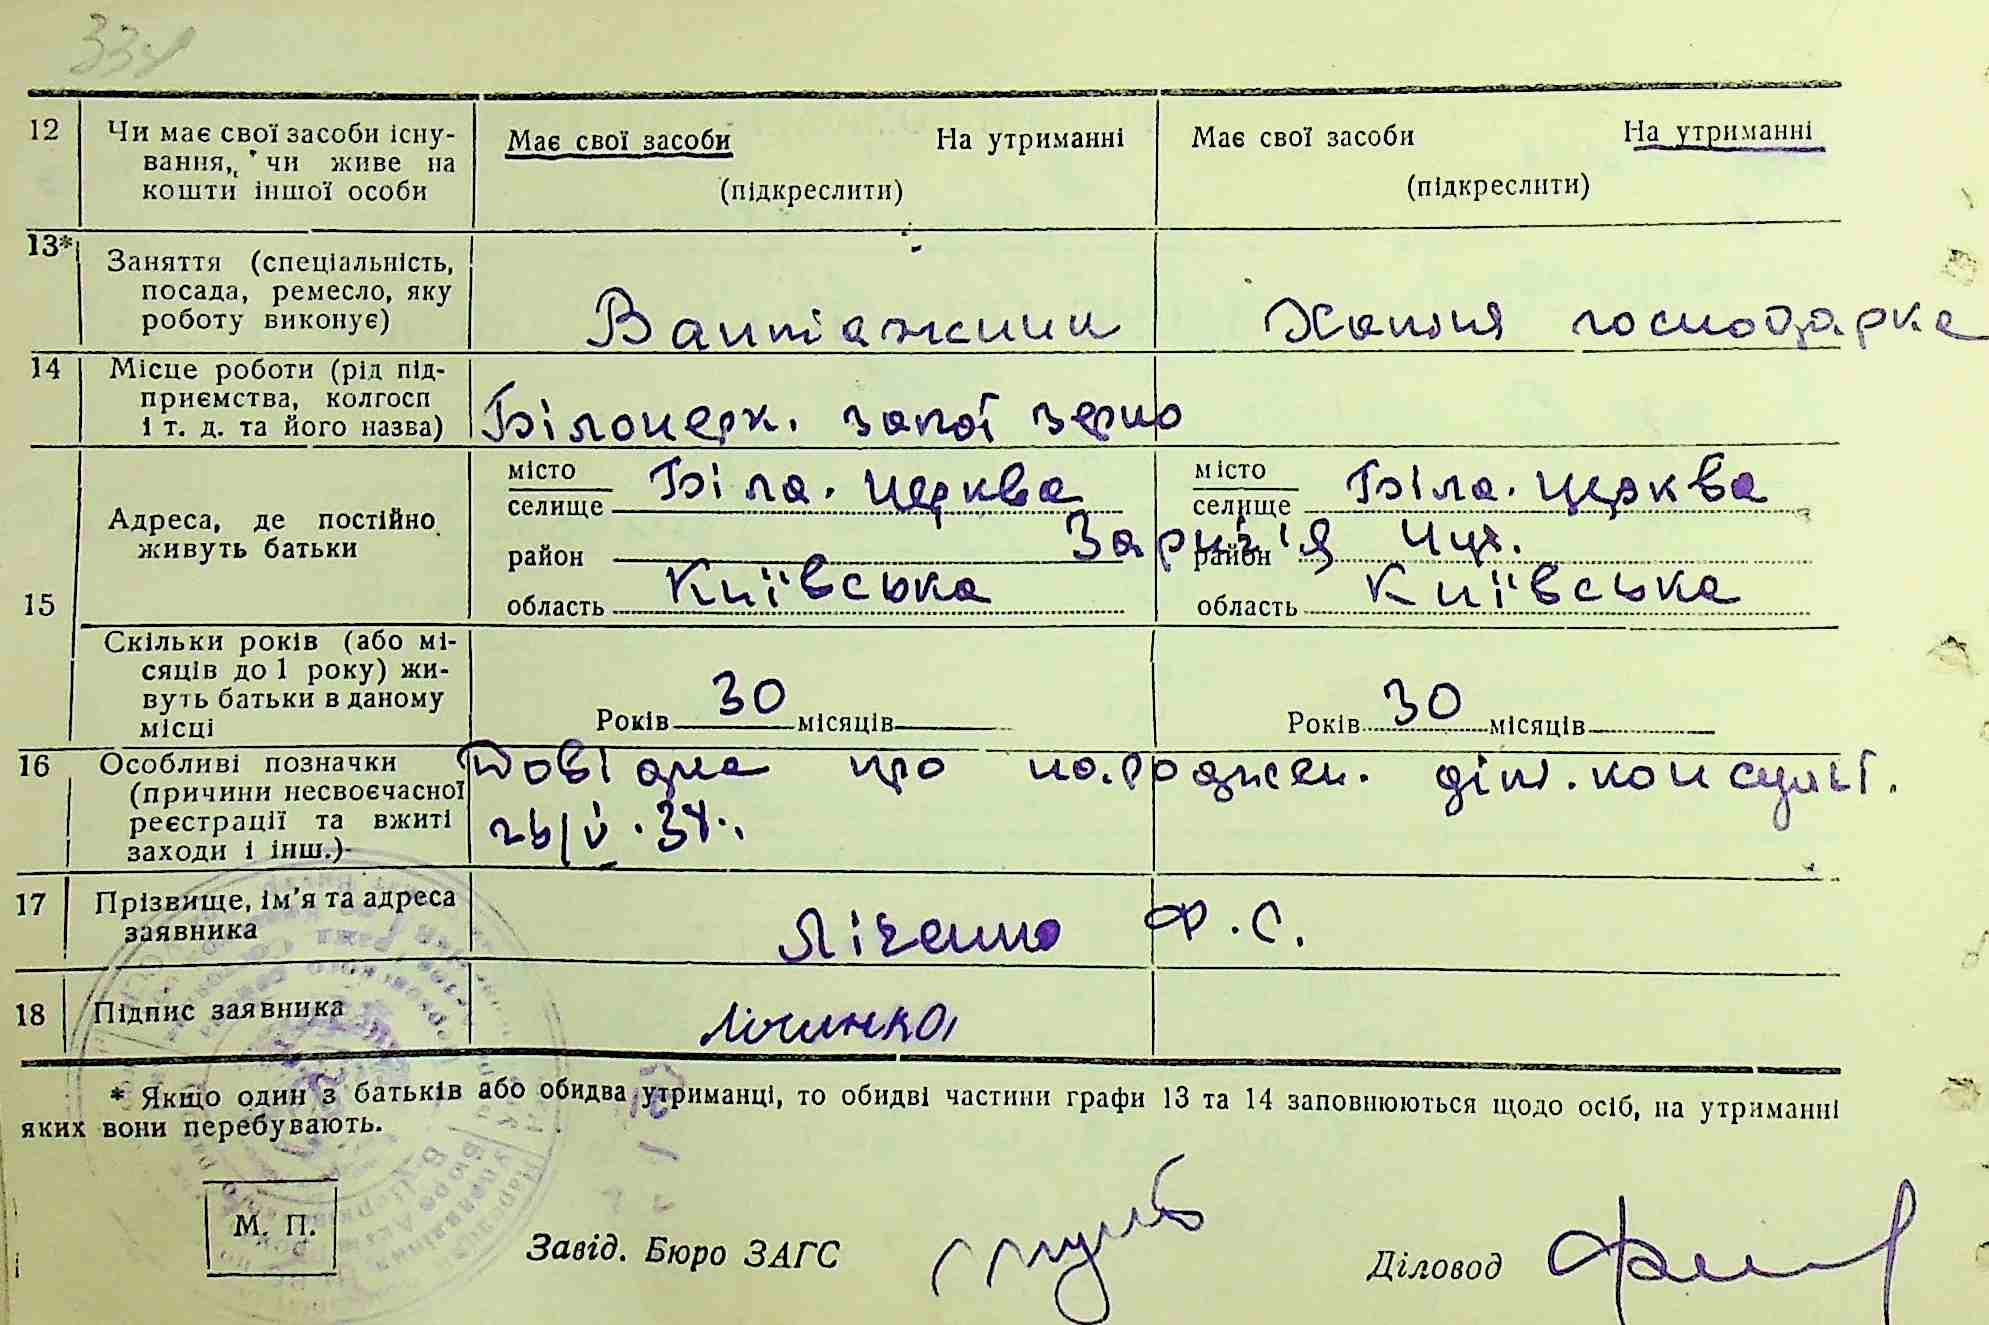 334
12 Чи має свої засоби існу-
вання, чи живе на
кошти іншої особи
Має свої засоби На утриманні
(підкреслити)
Має свої засоби На утриманні
(підкреслити)
13* Заняття (спеціальність,
посада, ремесло, яку
роботу виконує)
Вантажник
Хатня господарка
14 Місце роботи (рід під-
приємства, колгосп
і т. д. та його назва)
Білоцерк. загот зерно
15 Адреса, де постійно
живуть батьки
місто
селище Біла. церква
район
область Київська
місто
селище Біла. церква
район
область Київська
Скільки років (або мі-
сяців до 1 року) жи-
вуть батьки в даному
місці
Років 30 місяців
Років 30 місяців
16 Особливі позначки
(причини несвоєчасної
реєстрації та вжиті
заходи і інш.)
Довідка про на.роджен. дит.консульт.
17 Прізвище, ім'я та адреса
заявника
Ліченко Ф.С.
18 Підпис заявника
* Якщо один з батьків або обидва утриманці, то обидві частини графи 13 та 14 заповнюються щодо осіб, на утриманні
яких вони перебувають.
М. П.
Завід. Бюро ЗАГС
Діловод